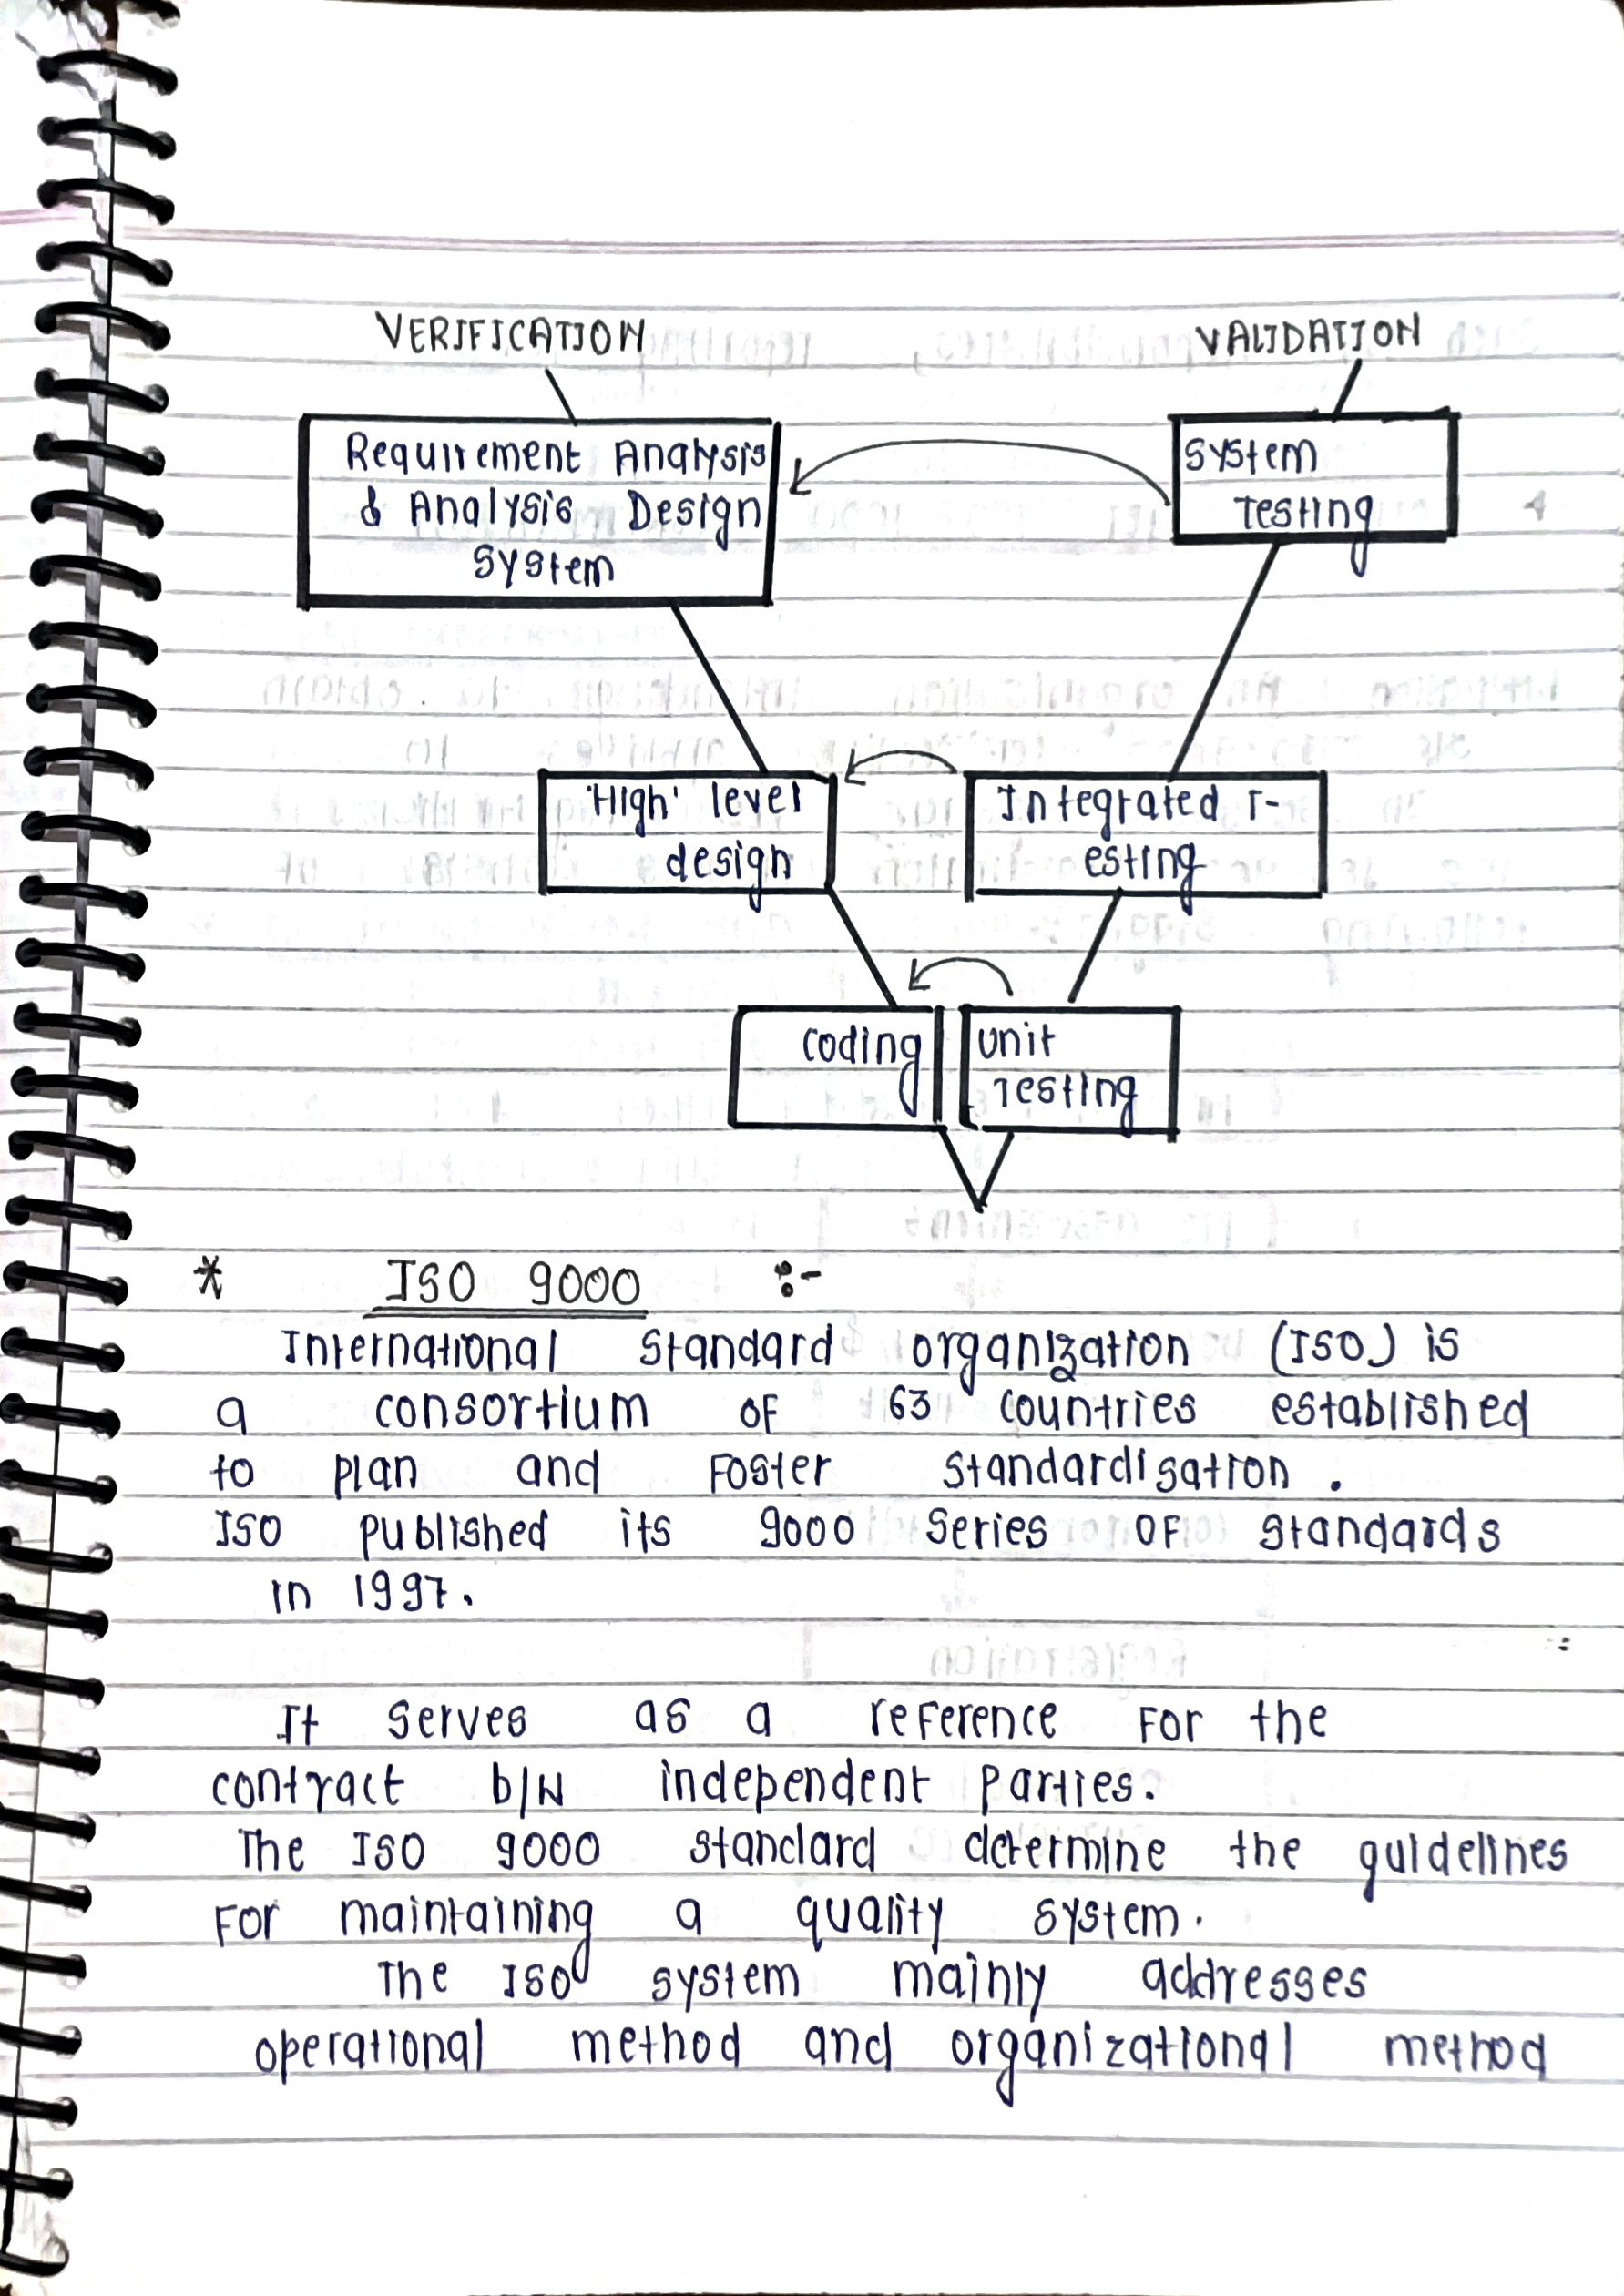 VERIFICATION VALIDATION
Requirement Analysis
& Analysis Design
system
system
Testing
'High' level
design
Integrated T-
esting
coding
unit
Testing
* ISO 9000 :-
International standard organization (ISO) is
a consortium of 63 countries established
to plan and Foster standardisation .
ISO published its 9000 series of standards
in 1997.
It serves as a reference for the
contract b/w independent parties.
The ISO 9000 standard determine the guidelines
For maintaining a quality system.
The ISO system mainly addresses
operational method and organizational method